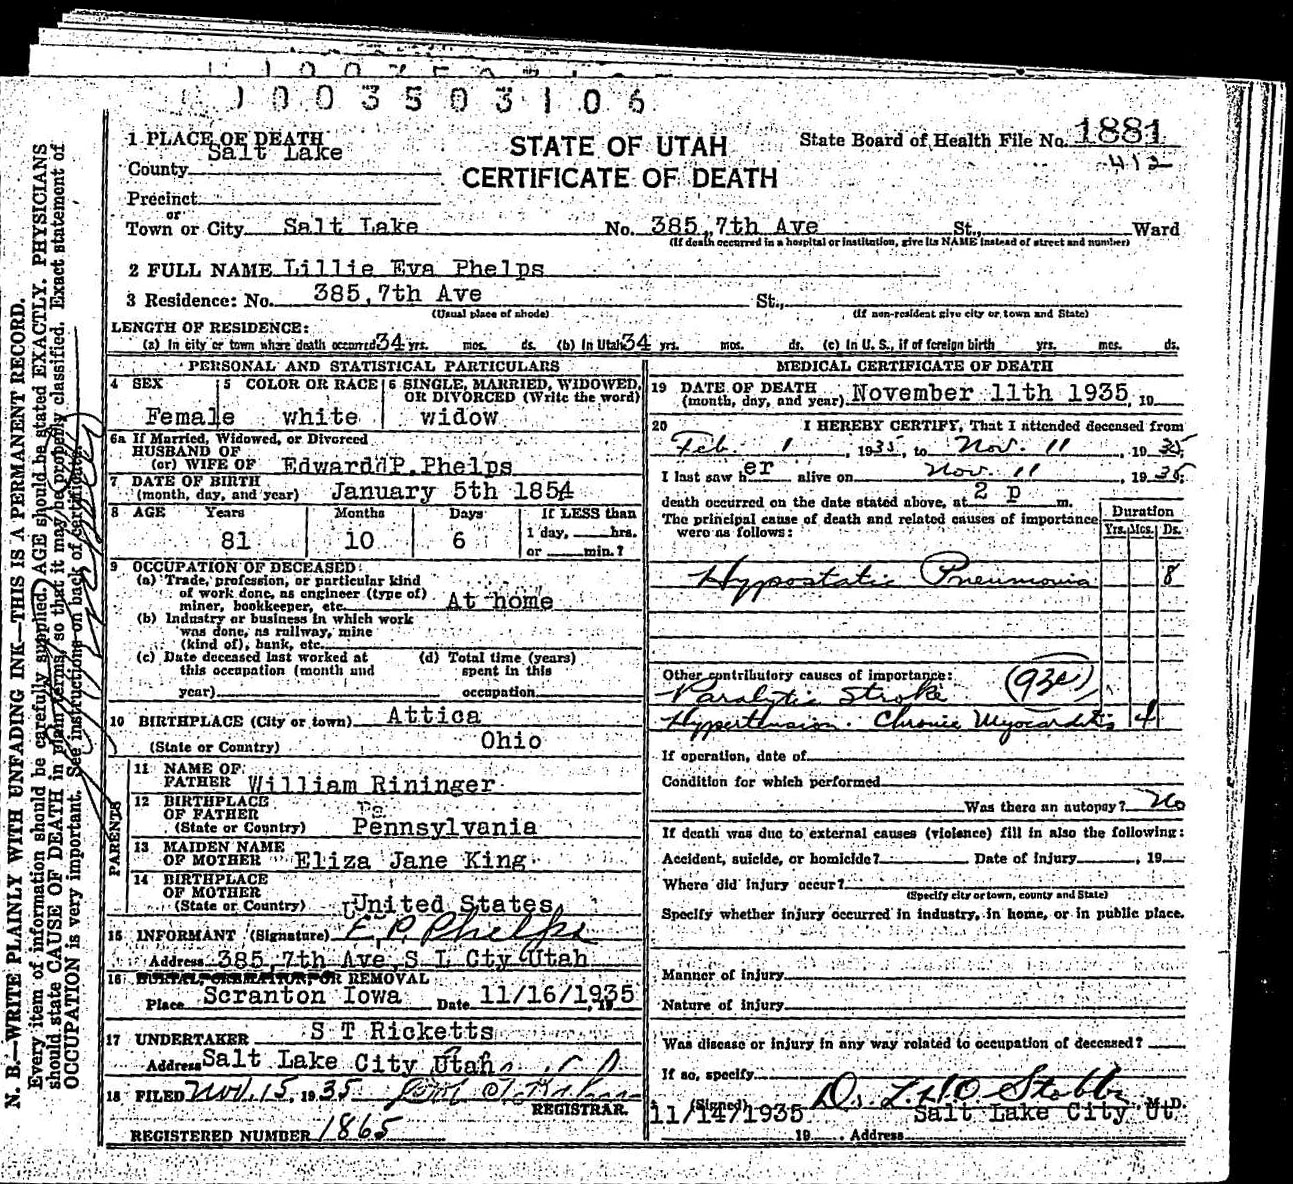 1003503106
1 PLACE OF DEATH
STATE OF UTAH
CERTIFICATE OF DEATH
State Board of Health File No. 1881
412
County Salt Lake
Precinct
or
Town or City Salt Lake No. 385, 7th Ave St., Ward
(If death occurred in a hospital or institution, give its NAME instead of street and number)
2 FULL NAME Lillie Eva Phelps
3 Residence: No. 385, 7th Ave St.,
(Usual place of abode) (If non-resident give city or town and State)
LENGTH OF RESIDENCE:
(a) In city or town where death occurred 34 yrs. mos. ds. (b) In Utah 34 yrs. mos. ds. (c) In U. S., if of foreign birth yrs. mos. ds.
PERSONAL AND STATISTICAL PARTICULARS
4 SEX 5 COLOR OR RACE 6 SINGLE, MARRIED, WIDOWED, OR DIVORCED (Write the word)
Female white widow
6a If Married, Widowed, or Divorced
HUSBAND OF
(or) WIFE OF Edward P. Phelps
7 DATE OF BIRTH
(month, day, and year) January 5th 1854
8 AGE Years Months Days If LESS than
81 10 6 1 day, hrs.
or min.?
9 OCCUPATION OF DECEASED:
(a) Trade, profession, or particular kind
of work done, as engineer (type of)
miner, bookkeeper, etc. At home
(b) Industry or business in which work
was done, as railway, mine
(kind of), bank, etc.
(c) Date deceased last worked at (d) Total time (years)
this occupation (month and spent in this
year) occupation
10 BIRTHPLACE (City or town) Attica
(State or Country) Ohio
PARENTS
11 NAME OF
FATHER William Rininger
12 BIRTHPLACE
OF FATHER
(State or Country) Pennsylvania
13 MAIDEN NAME
OF MOTHER Eliza Jane King
14 BIRTHPLACE
OF MOTHER
(State or Country) United States
15 INFORMANT (Signature) E. P. Phelps
Address 385, 7th Ave S L Cty Utah
16 BURIAL, CREMATION, OR REMOVAL
Place Scranton Iowa Date 11/16/1935, 19
17 UNDERTAKER S T Ricketts
Address Salt Lake City Utah
18 FILED Nov. 15, 1935
REGISTRAR.
REGISTERED NUMBER 1865
MEDICAL CERTIFICATE OF DEATH
19 DATE OF DEATH
(month, day, and year) November 11th 1935, 19
20 I HEREBY CERTIFY, That I attended deceased from
Feb. 1, 1935, to Nov. 11, 1935;
I last saw her alive on Nov. 11, 1935;
death occurred on the date stated above, at 2 p m.
The principal cause of death and related causes of importance
were as follows:
Duration
Yrs. Mos. Ds.
Hypostatic Pneumonia 8
Other contributory causes of importance:
Paralytic Stroke
Hypertension. Chronic Myocarditis 4
If operation, date of
Condition for which performed
Was there an autopsy? No
If death was due to external causes (violence) fill in also the following:
Accident, suicide, or homicide? Date of injury, 19
Where did injury occur?
(Specify city or town, county and State)
Specify whether injury occurred in industry, in home, or in public place.
Manner of injury
Nature of injury
Was disease or injury in any way related to occupation of deceased?
If so, specify
(Signed) M. D.
11/14/1935 Salt Lake City Ut
19 Address
N. B.—WRITE PLAINLY WITH UNFADING INK—THIS IS A PERMANENT RECORD.
Every item of information should be carefully supplied. AGE should be stated EXACTLY. PHYSICIANS
should state CAUSE OF DEATH in plain terms, so that it may be properly classified. Exact statement of
OCCUPATION is very important. See instructions on back of certificate.